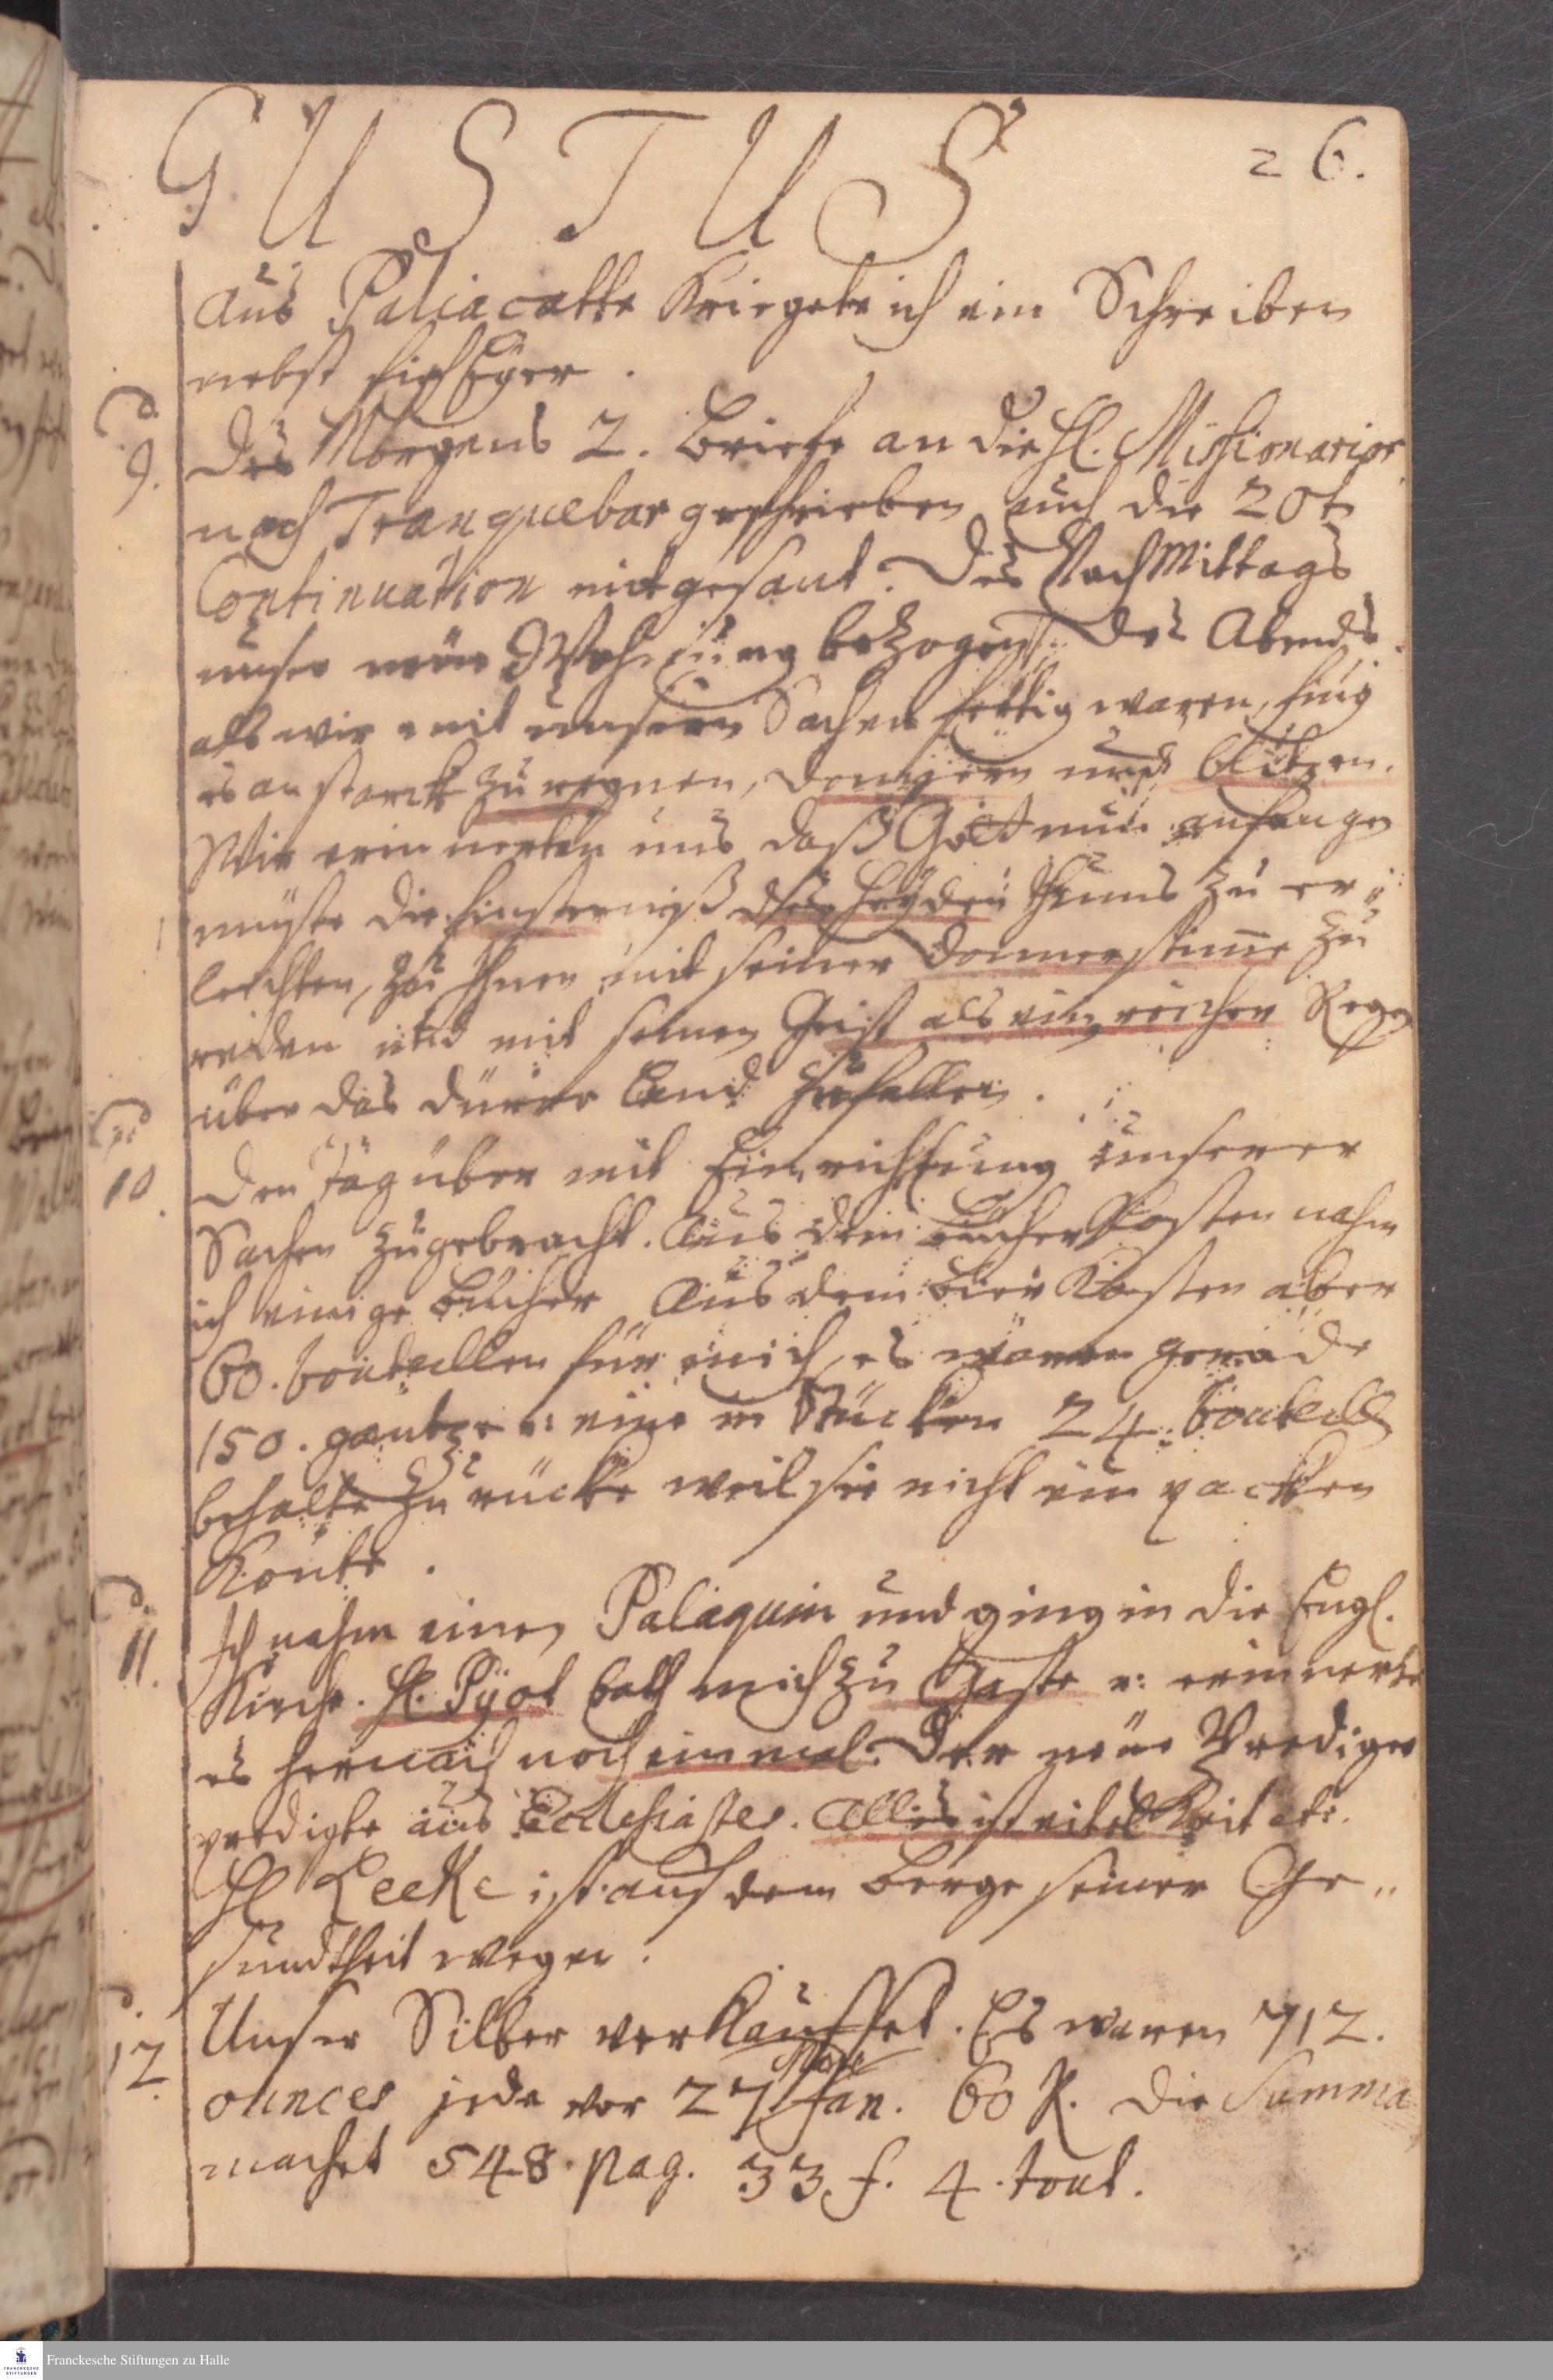 GUSTUS
26.
Aus Paliacatta kriegete ich ein Schreiben
nebst
d.
9.
Des Morgens 2. Briefe an die H. Missionarios
nach Tranquebar geschrieben auch die 20t
Continuation mitgesant. Des Nachmittags
unser neue Wohnung bezogen. Des Abends
als wir mit unsern Sachen fertig waren, fing
es an starck zu regnen, donnern und blitzen.
Wir erinnerten uns daß Gott nun anfangen
müste die Finsterniß des Heydenthums zu er„
leuchten, zu Ihnen mit seiner Donnerstimme zu
reden und mit seinen Geist als ein reicher Regen
über das dürre Land zu fallen.
d.
10.
Den Tag über mit Einrichtung unserer
Sachen zugebracht. Aus dem Bücher Kasten nahm
ich einige Bücher Aus dem Bier Kasten aber
60. bouteillen für mich, es waren gerade
150. gantze u: eine in Stücken 24. bouteill
behalte zurücke weil sie nicht ein packen
konte.
d.
11.
Ich nahm einen Palaquin und ging in die Engl.
Kirche. H. Pyot bath mich zu Gaste u: erinnerte
es hernach noch einmal. Der neue Prediger
predigte aus Ecclesiastes. Alles ist eitelkeit etc.
H Leeke ist auf dem Berge seiner Ge„
sundtheit wegen.
d.
12.
Unser Silber verkauffet. Es waren 712.
ounces jede vor 27. fan. 60 K. Die Summa
machet 548. pag. 33 f. 4. tout.
Franckesche Stiftungen zu Halle
FRANCKESCHE STIFTUNGEN